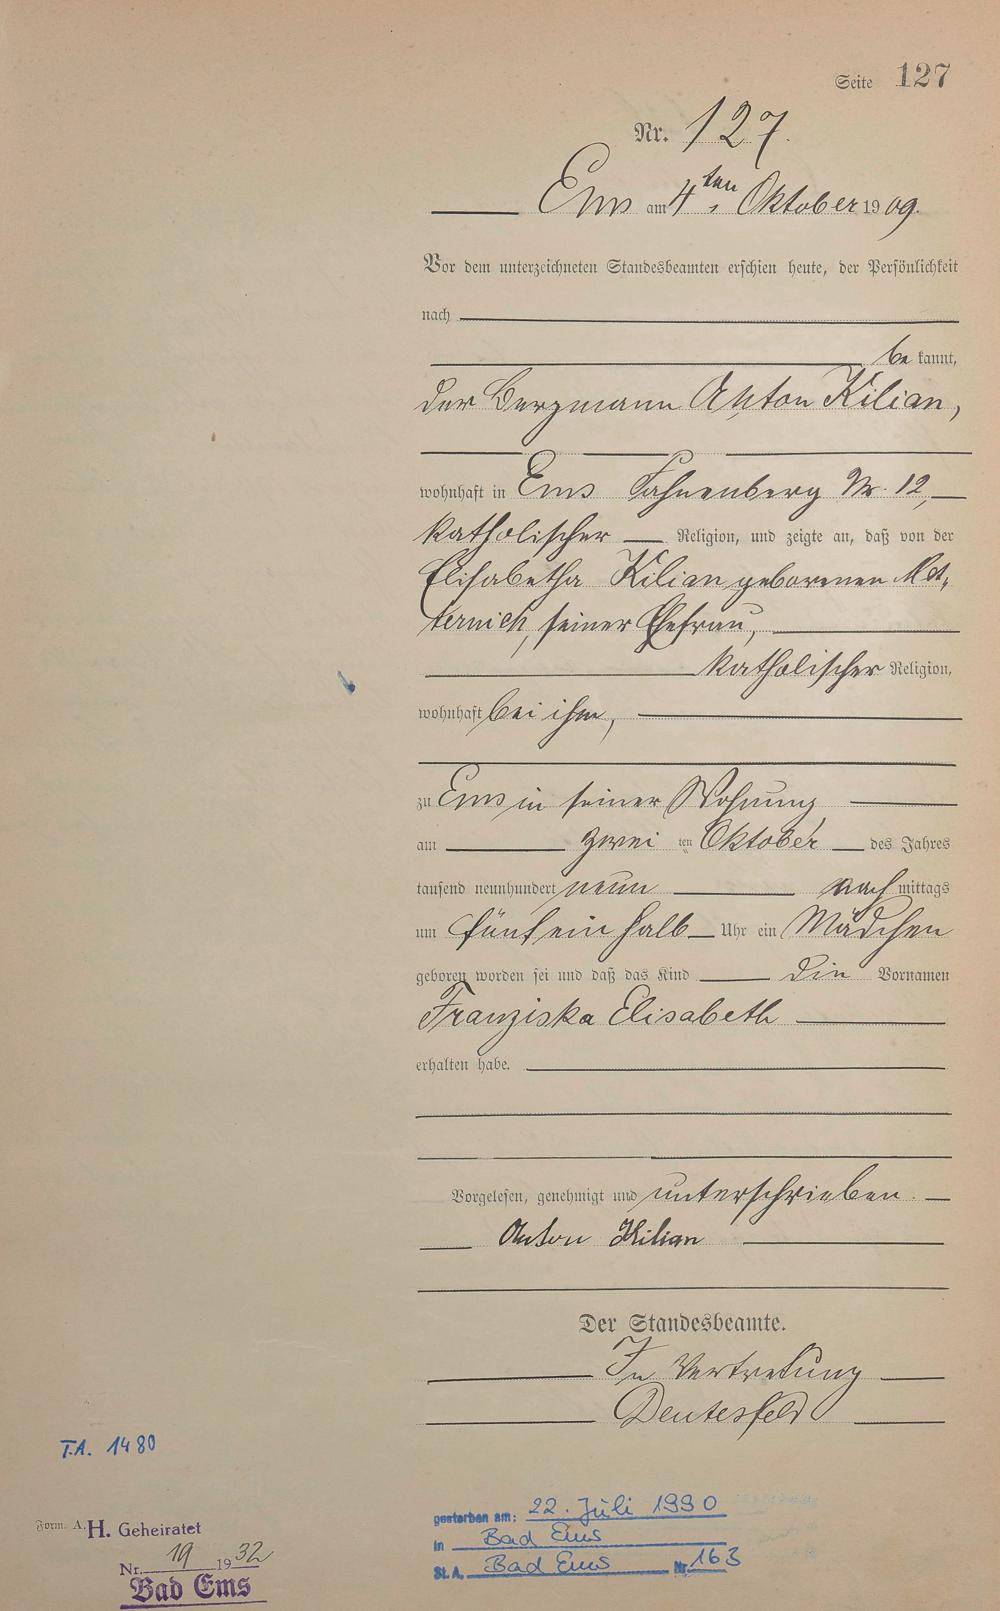 Seite 127
Nr. 127.
Ems am 4ten Oktober 1909.
Vor dem unterzeichneten Standesbeamten erschien heute, der Persönlichkeit
nach
be kannt,
der Bergmann Anton Kilian,
wohnhaft in Ems Fahnenberg Nr. 12,
katholischer Religion, und zeigte an, daß von der
Elisabetha Kilian geborenen Met-
ternich, seiner Ehefrau,
katholischer Religion,
wohnhaft bei ihm,
zu Ems in seiner Wohnung
am zwei ten Oktober des Jahres
tausend neunhundert neun nach mittags
um fünf ein halb Uhr ein Mädchen
geboren worden sei und daß das Kind die Vornamen
Franziska Elisabeth
erhalten habe.
Vorgelesen, genehmigt und unterschrieben.
Anton Kilian
Der Standesbeamte.
In Vertretung
Deutesfeld
T.A. 1480
Form. A. H. Geheiratet
Nr. 19 1932
Bad Ems
gestorben am: 22. Juli 1990
in Bad Ems
St. A. Bad Ems Nr. 163